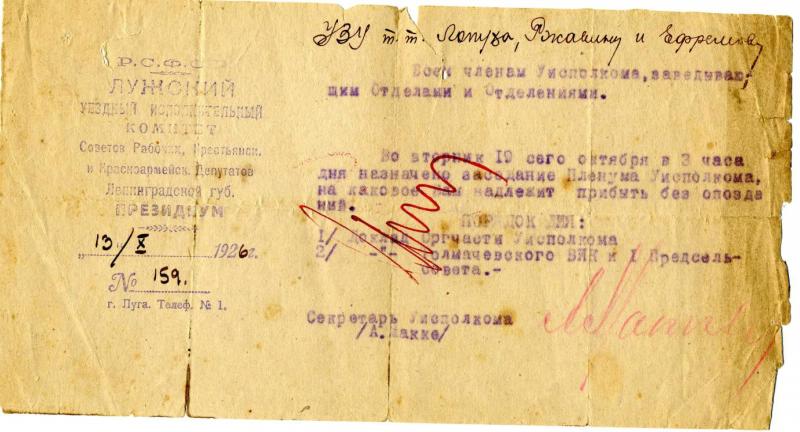 УЗУ т.т. Лопухо, Ржавину и Ефремову
Р.С.Ф.С.Р.
ЛУЖСКИЙ
УЕЗДНЫЙ ИСПОЛНИТЕЛЬНЫЙ
КОМИТЕТ
Советов Рабочих, Крестьянск.
и Красноармейск. Депутатов
Ленинградской губ.
ПРЕЗИДИУМ
"13/X 1926г.
№ 159.
г. Луга. Телеф. № 1.
Всем членам Уисполкома, заведываю-
щим Отделами и Отделениями.
Во вторник 19 сего октября в 3 часа
дня назначено заседание Пленума Уисполкома,
на каковое Вам надлежит прибыть без опозда
ний.
ПОРЯДОК ДНЯ:
1/ Доклад Оргчасти Уисполкома
2/ -"- Толмачевского ВИК и 1 Предсель-
совета.-
Секретарь Уисполкома
/А.Макке/